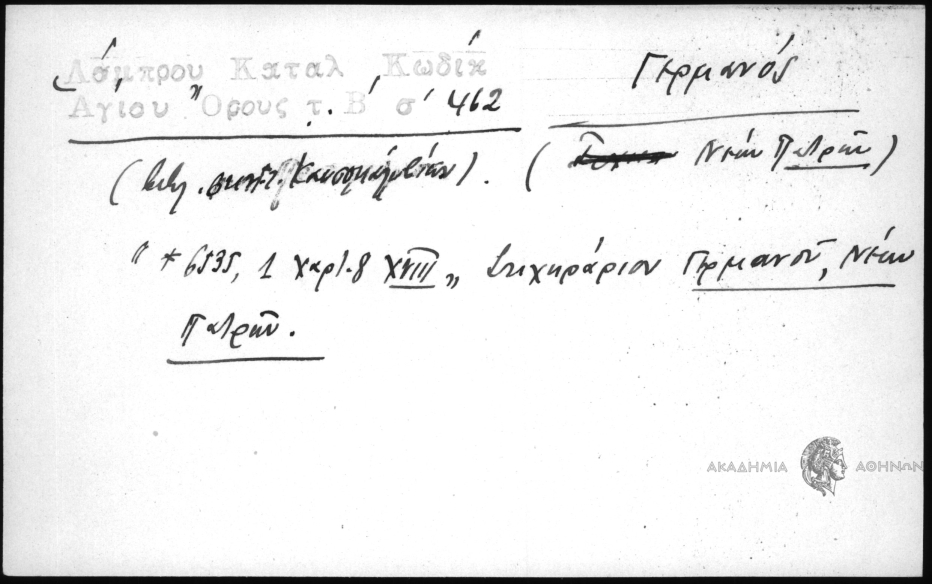 Λάμπρου Καταλ Κωδίκ
Αγίου Όρους τ. Β' σ' 462
Γερμανός
( Νέων Πατρῶν )
" * 6535, 1 χαρτ. 8 XVIII „ Στιχηράριον Γερμανοῦ, Νέων
Πατρῶν.
ΑΚΑΔΗΜΙΑ ΑΘΗΝΩΝ